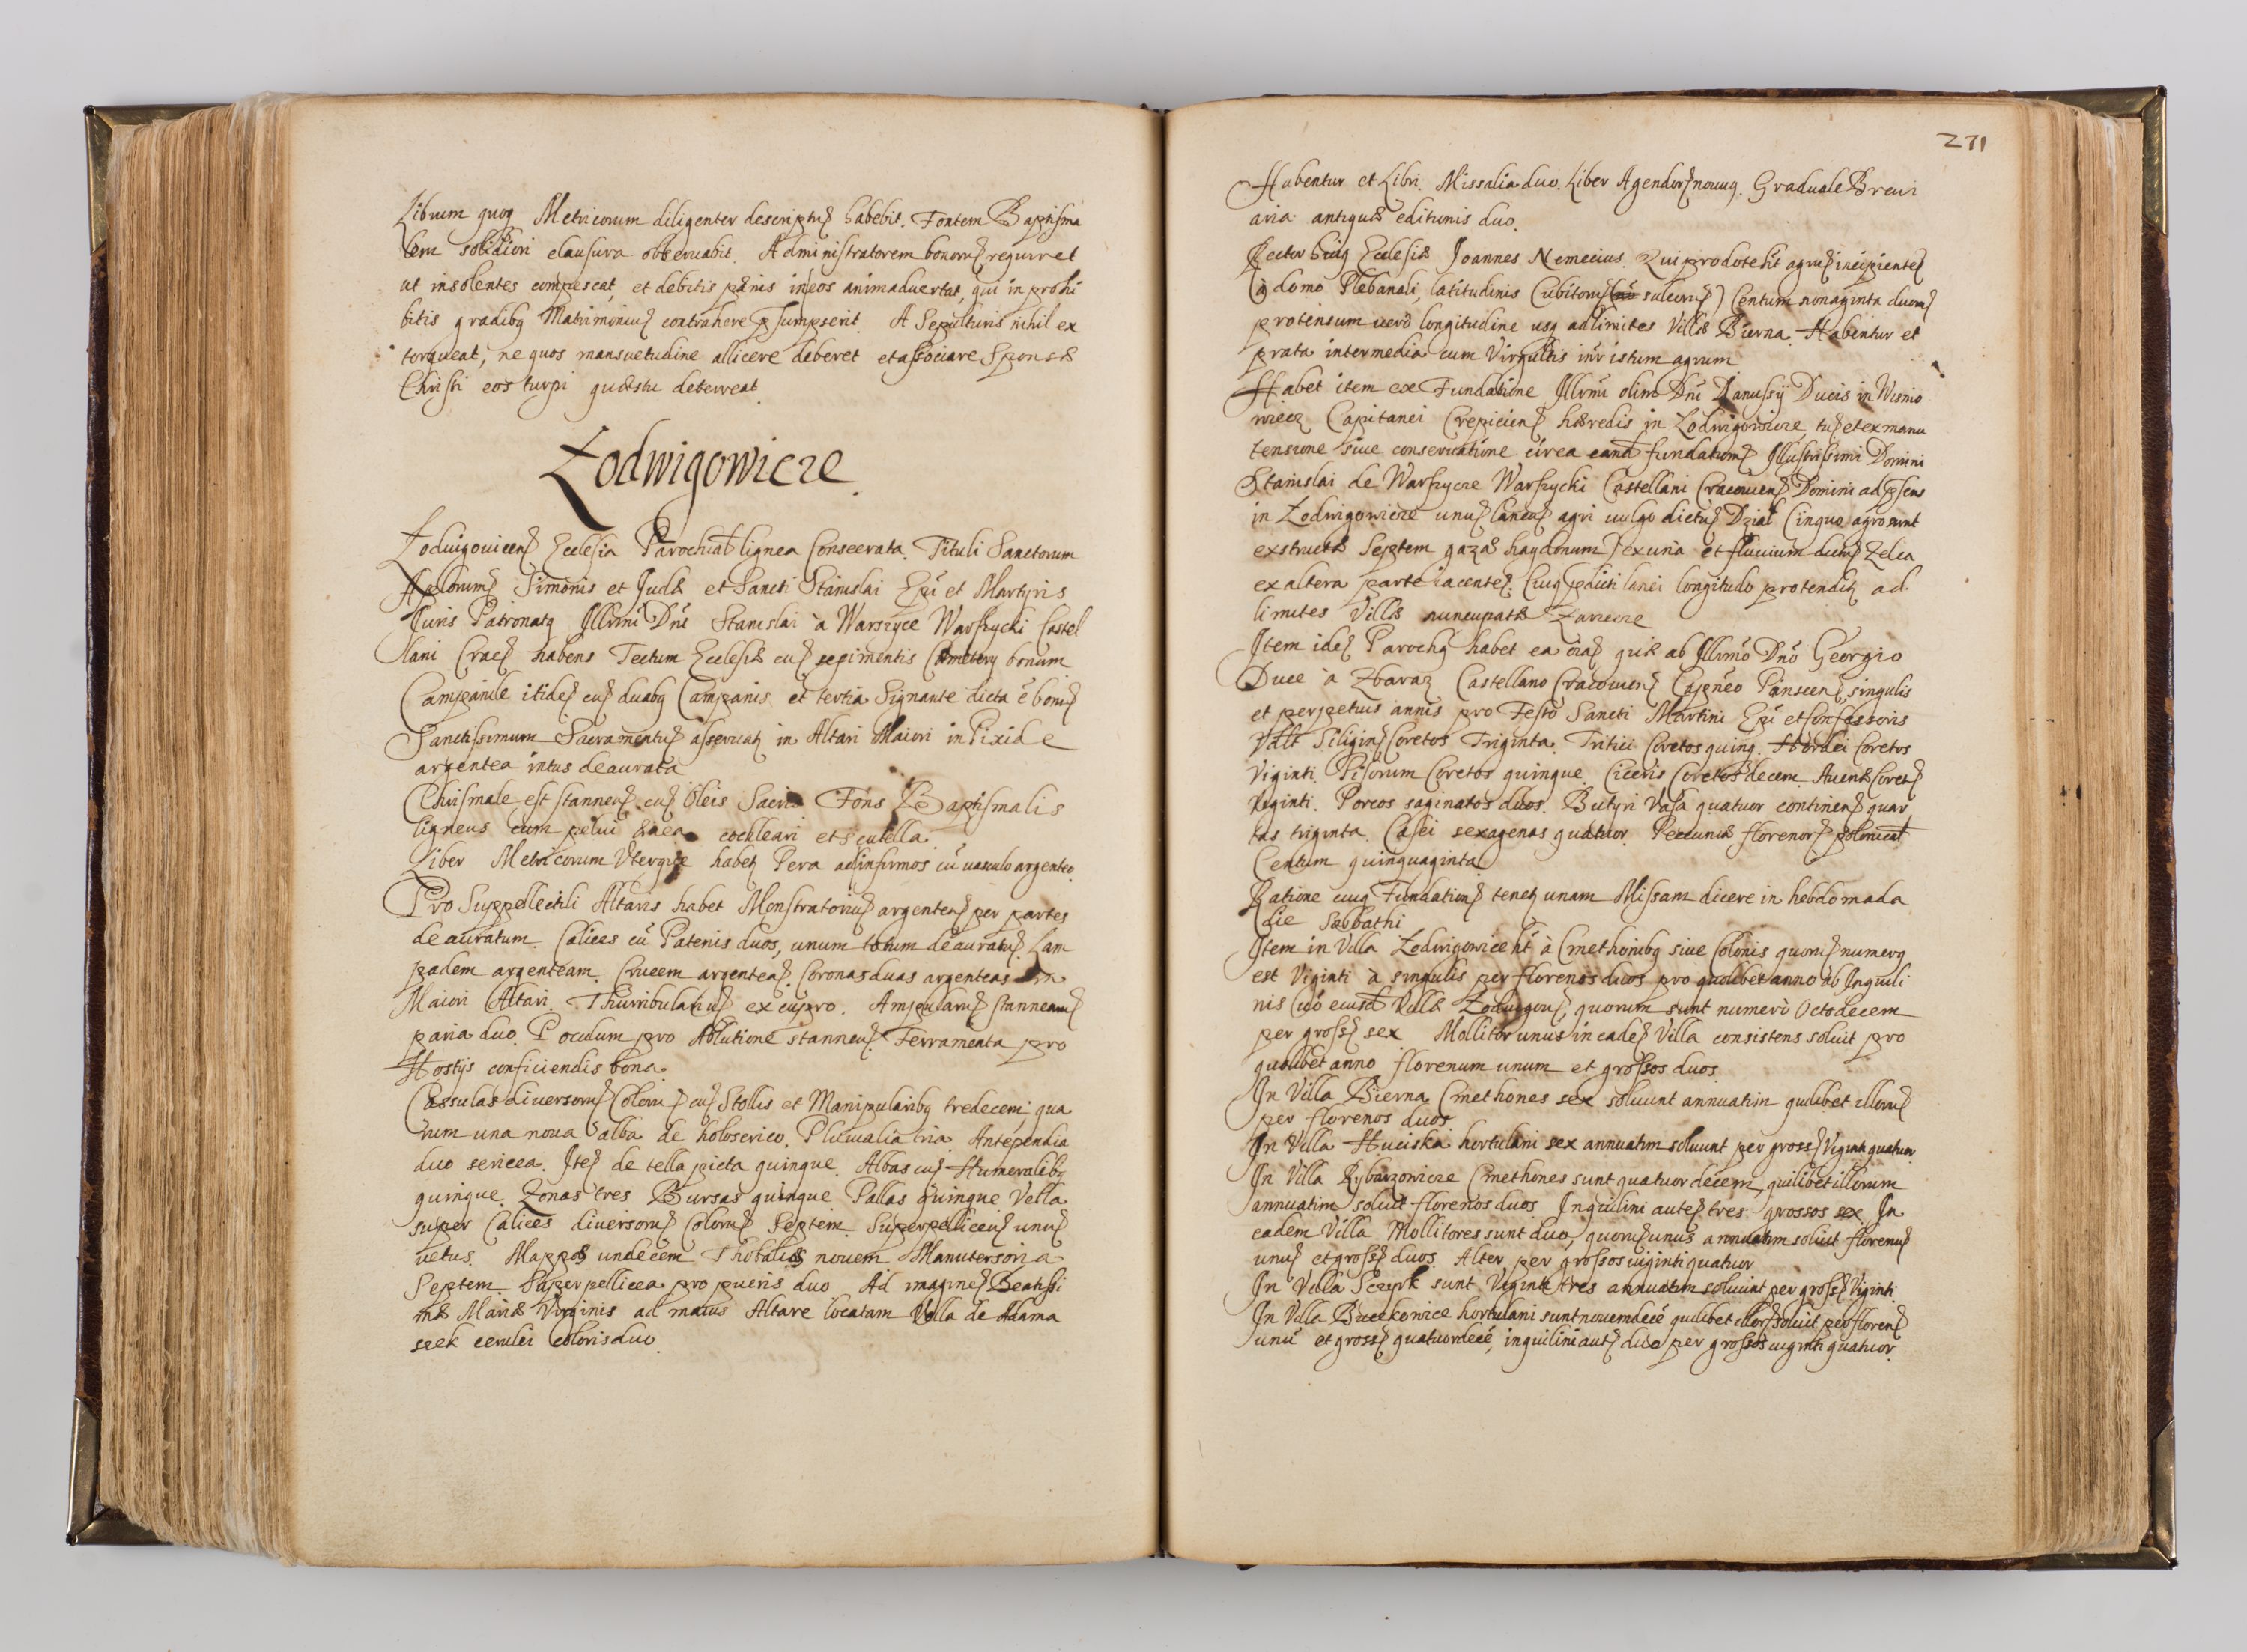 Librum quoq Metricorum diligenter descriptũ habebit. Fontem Baptisma
lem solidiori clausura obseruabit. Administratorem bonorũ requiret
ut insolentes compescat, et debitis pænis in eos animaduertat, qui in prohi
bitis gradibq Matrimoniũ contrahere psumpserit. A Sepulturis nihil ex
torqueat, ne quos mansuetudine allicere deberet et associare Sponsæ
Christi eos turpi quæstu deterreat.
Łodwigowicze.
Łoduigouicen Ecclesia Parochial lignea Consecrata. Tituli Sanctorum
Aplorum Simonis et Judæ et Sancti Stanislai Epi et Martyris
Juris Patronatq Illrmi Dni Stanislai à Warszyce Warszycki Castel
lani Crac habens Tectum Ecclesiæ cũ sepimentis Cæmetery bonum
Campanile itidẽ cũ duabq Campanis et tertia Signante dicta ẽ bonũ
Sanctissimum Sacramentũ asseruatq in Altari Maiori in Pixide
argentea intus deaurata
Chrismale est stanneũ cũ Oleis Sacris Fons Baptismalis
ligneus cum pelui ærea cockleari et scutella.
Liber Metricorum Vterque habetq Pera ad infirmos cũ uasculo argenteo.
Pro Suppellectili Altaris habet Monstratoriũ argenteũ per partes
deauratum. Calices cũ Patenis duos, unum totum deauratũ. Lam
padem argenteam. Crucem argenteã. Coronas duas argenteas in
Maiori Altari. Thuribulariũ ex cupro. Ampularũ stannearũ
paria duo. Poculum pro Ablutione stanneũ. Ferramenta pro
Hostys conficiendis bona.
Cassulas diuersorũ Colorũ cũ Stollis et Manipularibq tredecem qua
rum una noua alba de holoserico. Pluuialia tria Antependia
duo sericea. Itẽ de tella picta quinque. Albas cũ Humeralibq
quinque. Zonas tres Bursas quinque Pallas quinque Vella
super Calices diuersorũ Colorũ Septem. Superpelliceũ unũ
uetus. Mappas undecem Thobalias nouem Manutersoria
Septem. Superpellicea pro pueris duo Ad imaginẽ Beatissi
mæ Mariæ Virginis ad maius Altare locatam Vella de Adama
szek cerulei coloris duo.
271
Habentur et Libri. Missalia duo. Liber Agendorũ nouuq. Graduale Breui
aria antiquæ editionis duo.
Rector huiq Ecclesiæ Joannes Nemecius. Qui pro dote hẽt agrũ incipientẽ
à domo Plebanali, latitudinis Cubitorũ sulcorũ) Centum nonaginta duorũ
protensum uerò longitudine usq ad limites Villæ Bierna. Habentur et
prata intermedia cum Virgultis intr istum agrum
Habet item ex Fundatione Illrmi olim Dni Janussij Ducis in Wisnio
wiecz Capitanei Crepicien hæredis in Łodwigowicze, tũ et ex manu
tensione siue conseruatione circa eand fundationẽ Illustrissimi Domini
Stanislai de Warszycze Warszycki Castellani Cracouien Domini ad psens
in Łodwigowicze unũ laneũ agri uulgo dictũ Dział (in quo agro sunt
exstructæ Septem gazæ haydonum) ex una et fluuium dictũ Zelca
ex altera parte iacentẽ. Cuiq pdicti lanei longitudo protenditq ad
limites Villæ nuncupatæ Zarzecze
Item idẽ Parochq habet ea oia quæ ab Illrmo Dno Georgio
Duce à Zbaraz Castellano Cracouien Capneo Pinscen singulis
et perpetuis annis pro Festo Sancti Martini Epi et Confessoris
Vdlt Siliginis Coretos Triginta. Tritici Coretos quinq. Hordei Coretos
Viginti. Pisorum Coretos quinque. Ciceris Coretos decem. Auenæ Coretõ
Viginti. Porcos saginatos duos. Butyri Vasa quatuor continen quar
tas triginta. Casei sexagenas quatuor. Pecuniæ florenorũ polonical
Centum quinquaginta
Ratione cuiq Fundationis tenetq unam Missam dicere in hebdomada
die Sabbathi
Item in Villa Łodwigowice hẽt à Cmethonibq siue Colonis quorũ numerq
est Viginti à singulis per florenos duos pro quolibet anno ab Inquili
nis uo eiusd Villæ Łoduigou, quorum sunt numerò Octodecem
per grosõ sex Mollitor unus in eadẽ Villa consistens soluit pro
quolibet anno florenum unum et grossos duos.
In Villa Bierna Cmethones sex soluunt annuatim quilibet illorũ
per florenos duos.
In Villa Huciska hortulani sex annuatim soluunt per grossõ Viginti quatuor.
In Villa Rybarzowicze Cmethones sunt quatuordecem, quilibet illorum
annuatim soluit florenos duos Inquilini autẽ tres grossos sex. In
eadem Villa Mollitores sunt duo, quorũ unus annuatim soluit florenũ
unũ et grossõ duos. Alter per grossos uiginti quatuor
In Villa Sczyrk sunt Viginti tres annuatim soluunt per grossõ Viginti.
In Villa Buczkowice hortulani sunt nouemdecẽ quilibet illorũ soluit per florenũ
unũ et grossõ quatuordecẽ, inquilini autẽ duo per grossos uiginti quatuor.